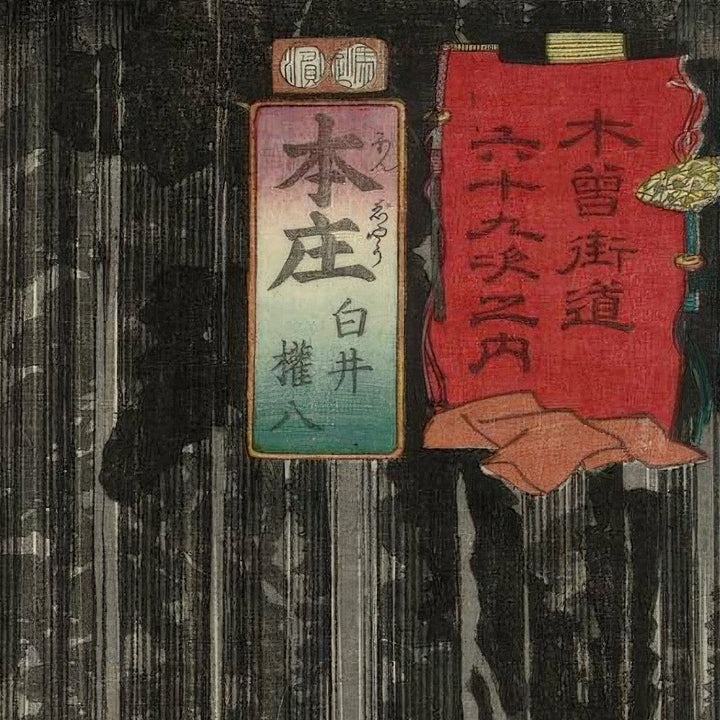 木曽街道
六十九次之内
本庄
ほん
志やう
白井
權八